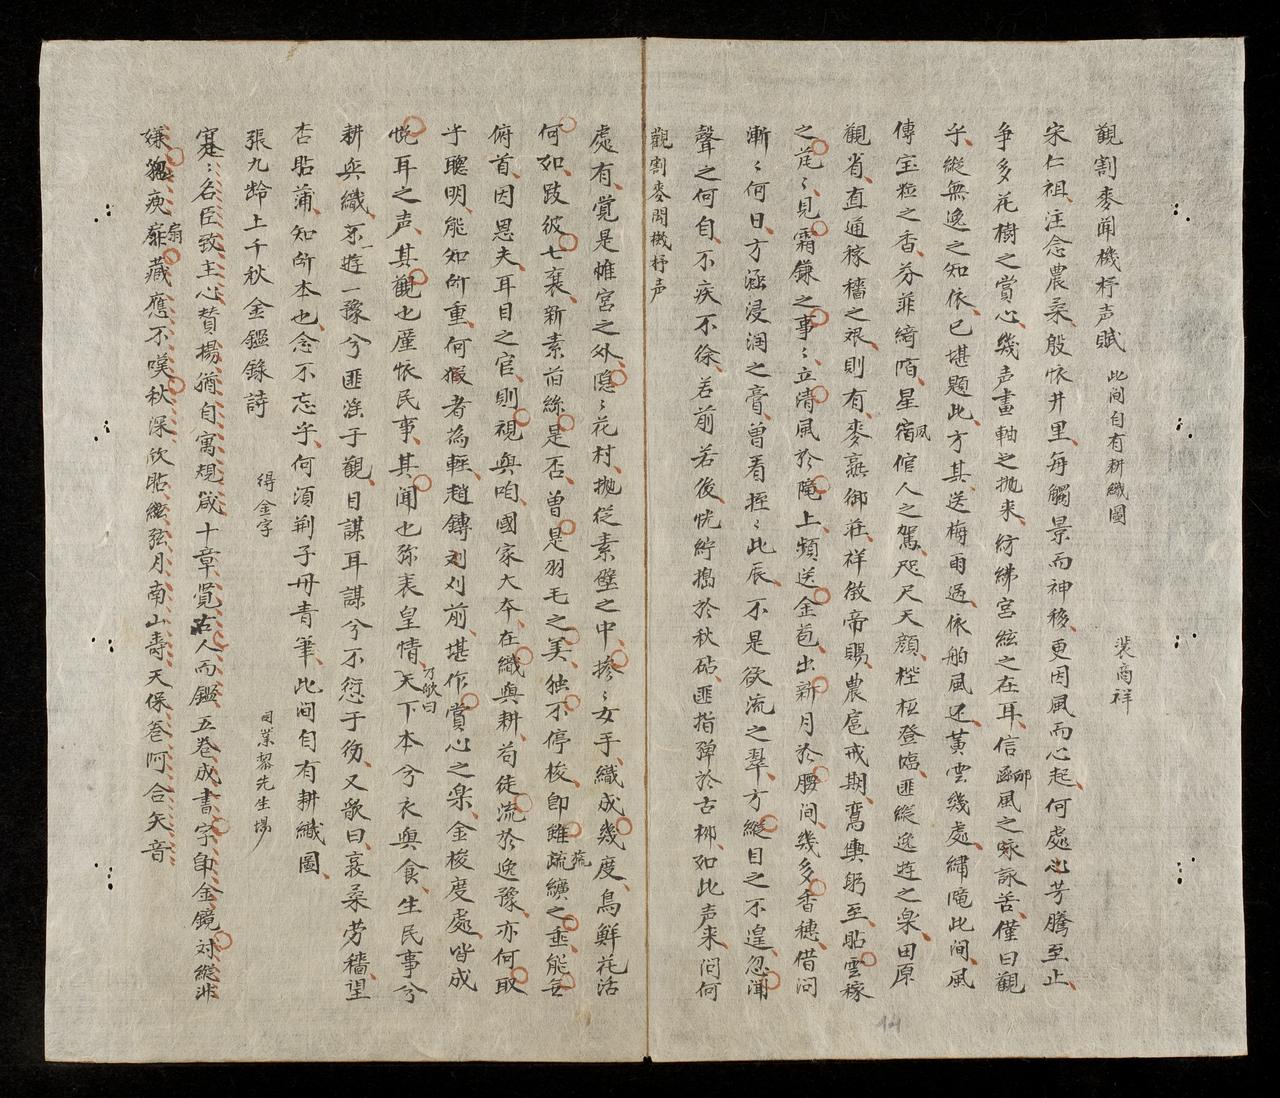 觀割麥聞機杼声賦 此间自有耕織圖 裴商祥
宋仁祖注念農桑殷怀井里每觸景而神移更因風而心起何處心芳騰至止
争多花樹之賞心幾声畫軸之抛来紡綈宮絃之在耳信豳風之咏詠苦僅曰觀
乎縱無逸之知依已堪題此方其送梅雨過依舶風还黃雲幾處繡隴此间風
傳宝粒之香芬菲綺陌星宿倌人之駕咫尺天顔陛楓登臨匪縱逸遊之楽田原
觀省直通稼穡之艰則有麥熹御莊祥敘帝賜農扈戒期鸞輿躬至貼雲稼
之芃〻見霜鎌之事〻立清風於隴上頻送金苞出新月於腰间幾多香穗借问
漸〻何日方涵浸润之膏曽看挃〻此辰不是欲流之翠方縱目之不遑忽聞
聲之何自不疾不徐若前若後恍紵搗於秋砧匪指弹於古柳如此声来问何
觀割麥聞機杼声
處有覚是帷宮之外隐〻花村抛従素壁之中摻〻女手織成幾度鳥鮮花活
何如跂彼七襄新素旧絲是否曽是羽毛之美独不停梭即雖疏纊之垂能無
俯首因思夫耳目之官則視與咱國家大夲在織與耕苟徒流於逸豫亦何取
乎聰明能知所重何猴者為輕趙鎛刈刈前堪作賞心之楽金梭度處皆成
悅耳之声其觀也廑怅民事其聞也弥表皇情乃歌曰天下本兮衣與食生民事兮
耕與織不遊一豫兮匪淫于觀目謀耳謀兮不愆于彷又歌曰哀桑劳穡望
杏貼蒲知所本也念不忘乎何須荆子丹青筆此间自有耕織圖
張九龄上千秋金鑑錄詩 得金字 司業黎先生場
寋〻名臣致主心賛揚猶自寓規箴十章覓古人而鑑五卷成書字即金鏡対縱非
嫌貌痩辭藏應不嘆秋深欣貼絃弦月南山壽天保卷阿合矢音